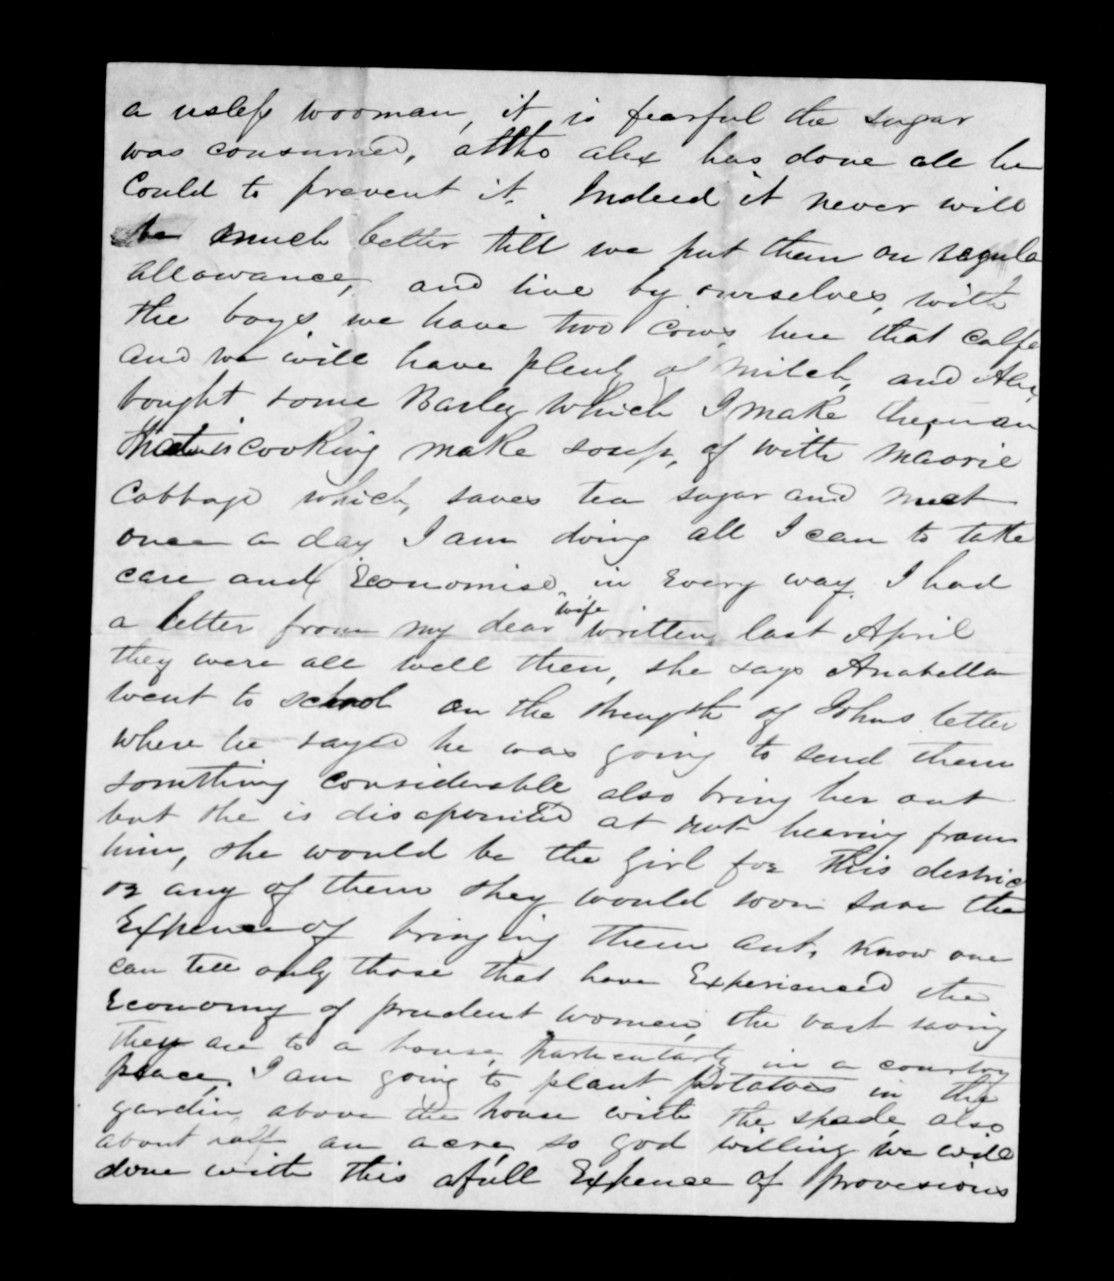 a usless wooman, it is fearful the sugar
was consumed, altho alex has done all he
Could to prevent it. Indeed it never will
be much better till we put them on regula
allowance, and live by ourselves, with
the boys, we have two cows here that calfe
and we will have plenty of milch, and Alex
bought some Barley which I make the man
that is cooking make soup, of with maorie
Cabbage which, saves tea sugar and meat
once a day I am doing all I can to take
care and Economise, in Every way. I had
a letter from my dear wife written last April
they were all well then, she says Anabella
went to school on the strength of Johns letter
where he sayed he was going to send them
somthing considerable also bring her out
but she is disapointed at not hearing from
him, she would be the girl for this distric
or any of them they would soon save the
Expence of bringing them out, know one
can tell only those that have Experienced the
Economy of prudent women, the vast saving
they are to a house, particularly in a country
place, I am going to plant potatoes in the
gardin, above the house with the spade also
about half an acre, so god willing we will
done with this afull Expence of provisions